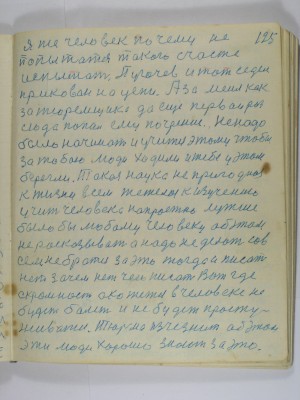 125
я та человек почему не
попытатся такого счасте
испытат. Пугачев и тот седел
прикован на цепи. А за меня как
за тюремщика да еще перваиров
сюда попал ему почрение. Ненадо
было начинат и учити этому чтоби
за тобою люди ходили и тебе у этом
берегли. Такая наука не пригодная
к жизни всем тяжела к изучению
учит человека напростно лучше
было бы любому человеку об этом
не расказыват а надо не делат сов
сем небрати за это тогда и писать
нет зачем нет чего писат Вот где
скромност а кротти в человеке не
будет балет и не будит просту-
живатся. Тюрма изчезнит об этом
эти люди хорошо знают за это.